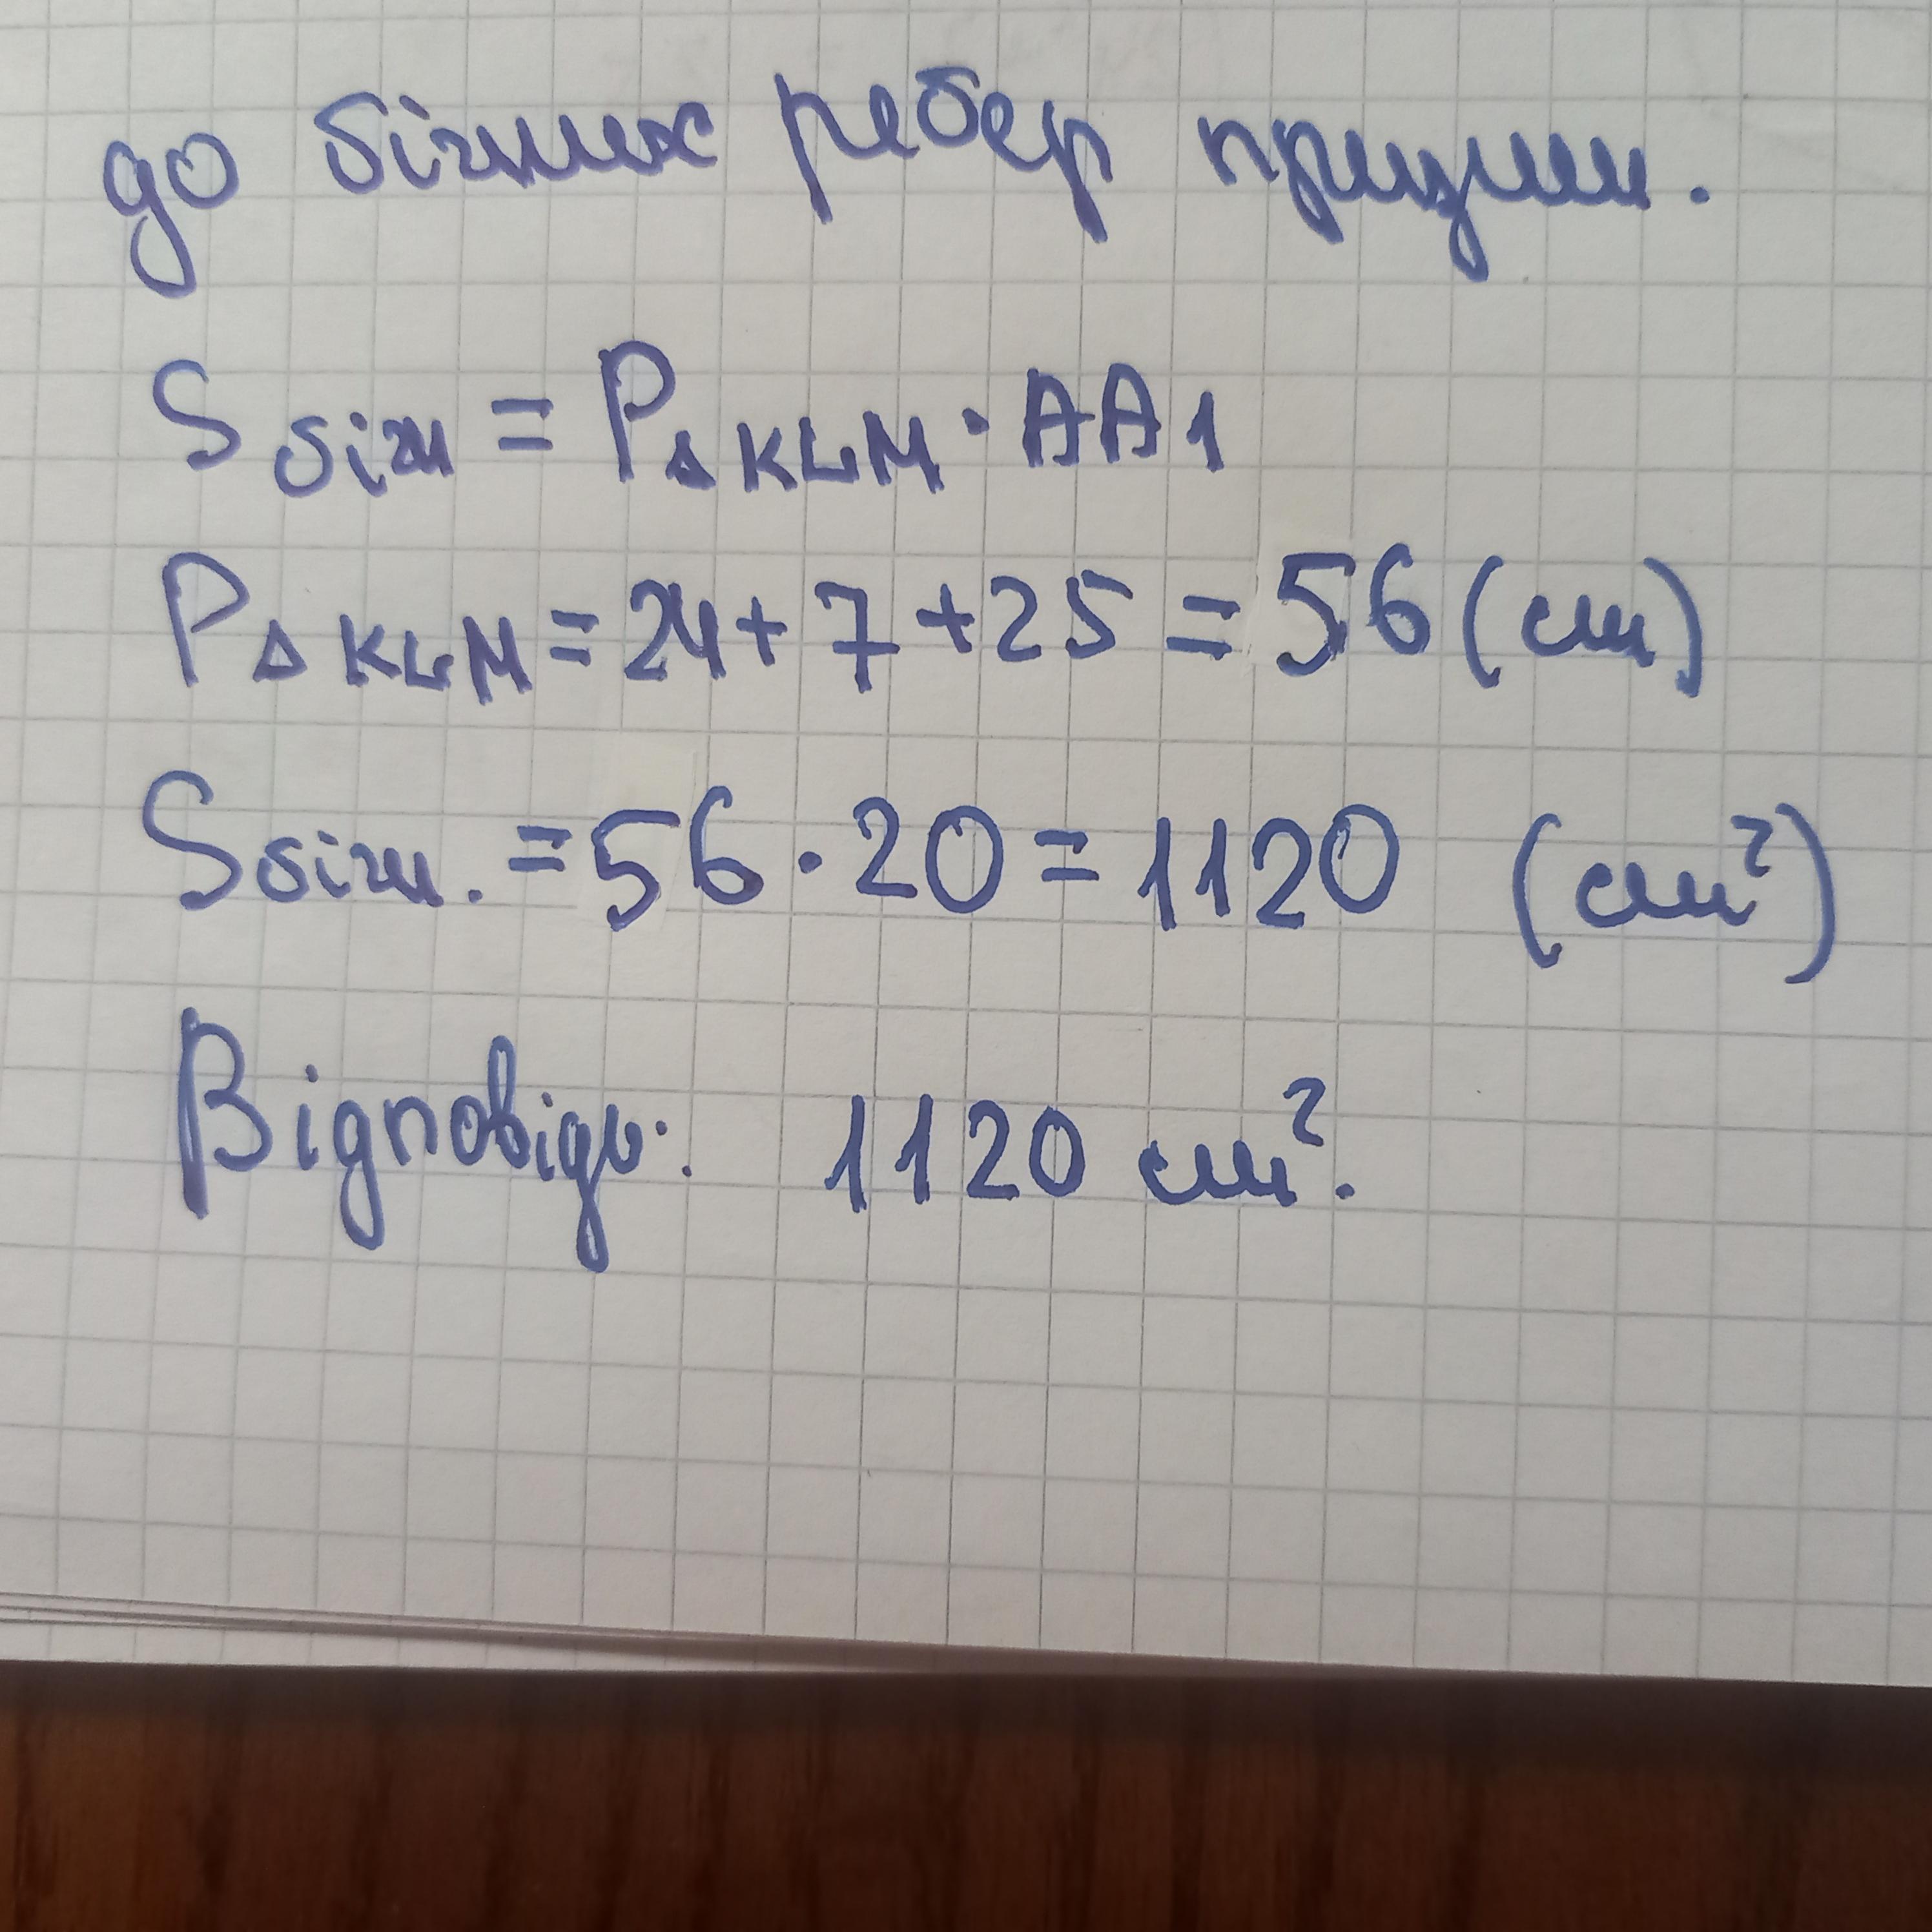 до бічних ребер призми.
S бічн = P△KLM · AA1
P△KLM = 24 + 7 + 25 = 56 (см)
Sбічн. = 56 · 20 = 1120 (см²)
Відповідь: 1120 см².